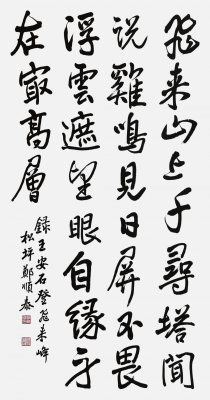 飛来山上千尋塔聞
說雞鳴見日昇不畏
浮雲遮望眼自緣身
在㝡髙層
錄王安石登飛来峰
松坪鄭順泰